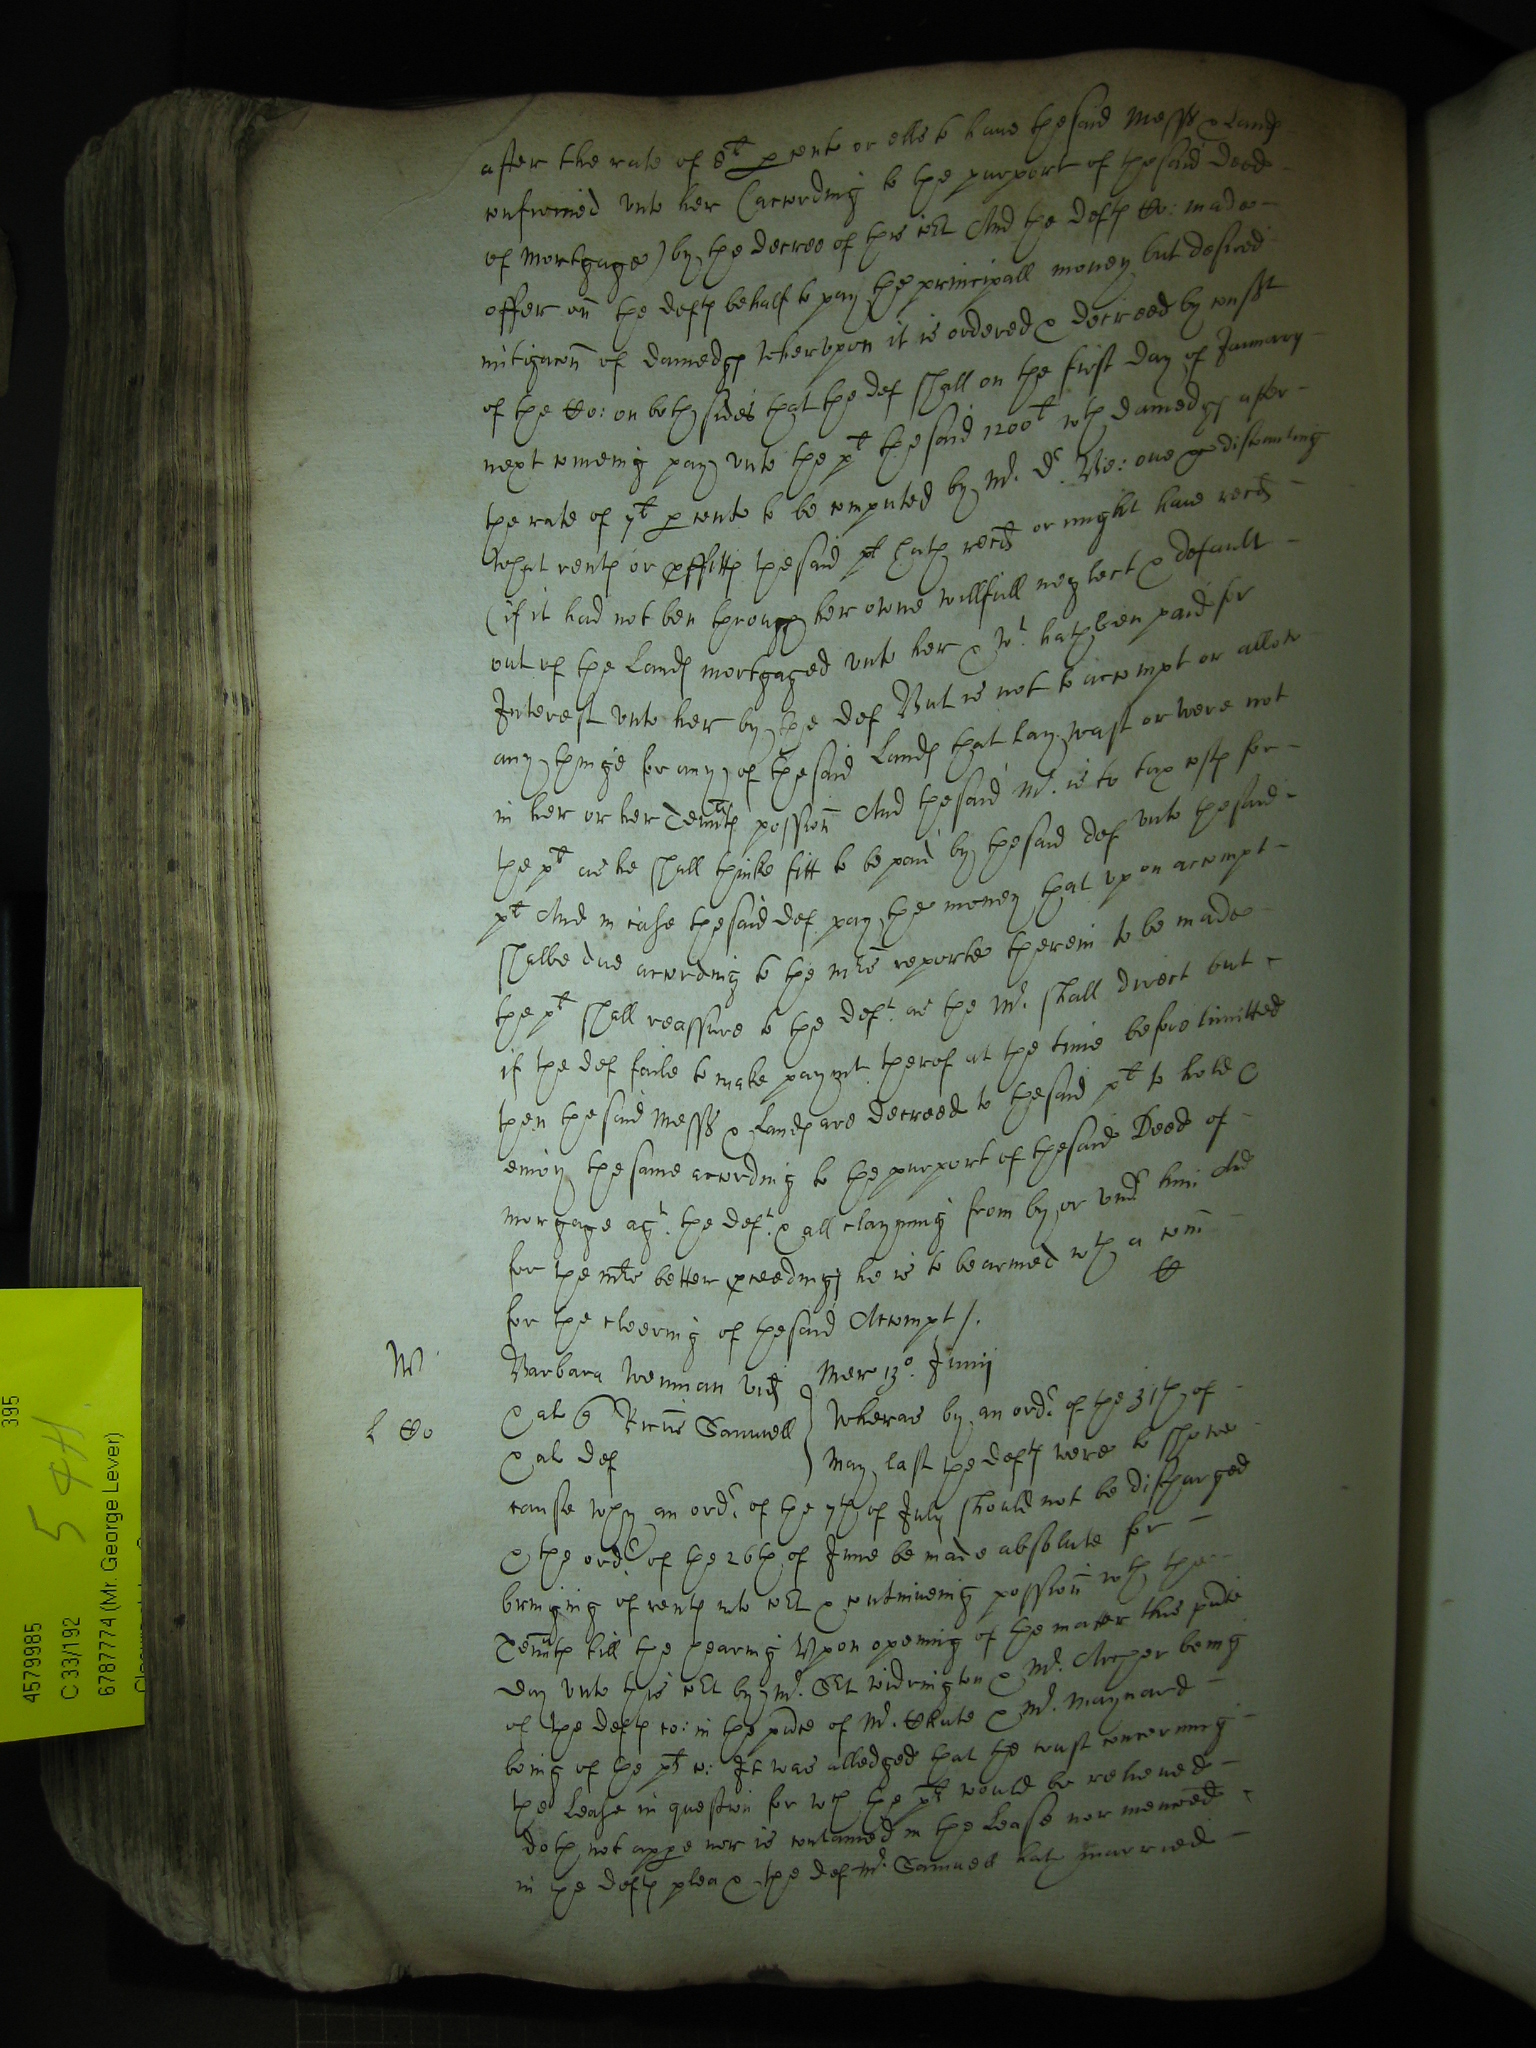 after the rate of 8li p cento or else to haue the said Messs & Lands
confirmed vnto her (according to the purport of the said deed
of Mortgage) by the decree of this cot And the defts Co: made
offer on the defts behalf to pay the principall money but desired
mitigacon of damedgs Wherupon it is ordered & decreed by consst
of the Co: on both sides that the def shall on the first day of January
next comeing pay vnto the plt the said 1200li wth damedgs after
the rate of 7li p cento to be computed by Mr. Dr. one discounting
What rents or pffitts the said plt hath recd or might haue recd
(if it had not ben through her owne willfull neglect & default
out of the Lands mortgaged vnto her & wt. hath been paid for
Interest vnto her by the def But is not to accompt or allow
any thinge for any of the said Lands that lay wast or were not
in her or her Tennts possion And the said Mr. is to tax costs for
the plt as he shall thinke fitt to be paid by the said def vnto the said
plt And in case the said def. pay the money that vpon accompt
shalbe due according to the mrs reporte therein to be made
the plt shall reassure to the deft. as the Mr. shall direct but
if the def faile to make paymt therof at the time before limitted
then the said Messs & Lands are decreed to the said plt to hold &
enioy the same according to the purport of the said Deed of
morgage agt. the deft. & all clayming from by or vndr him And
for the mrs better pceedings he is to be armed wth a com
for the cleering of the said Accompt /.
W
Barbara Wenman vid Mer 13o. Junij
& al Ricus Samuell } Wheras by an ordr. of the 31th of
& al def May last the defts were to shewe
cause why an ordr. of the 7th of July should not be discharged
& the ordr. of the 26th of June be made absolute for
bringing of rents into cot & continueing possion wth the
Tennts till the hearing Vpon opening of the matter this pnte
day vnto this cot by Mr. Widrington & Mr. Archer being
of the defts co: in the pnce of Mr. Chute & Mr. Maynard
being of the plts co: It was alledged that the trust concerning
the Lease in question for wch the plt would be releived
doth not appe nor is contained in the Lease nor menconed
in the defts plea & the def Mr. Samuell hath married
4579985
C 33/192
6787774 (Mr. George Lever)
395
544.